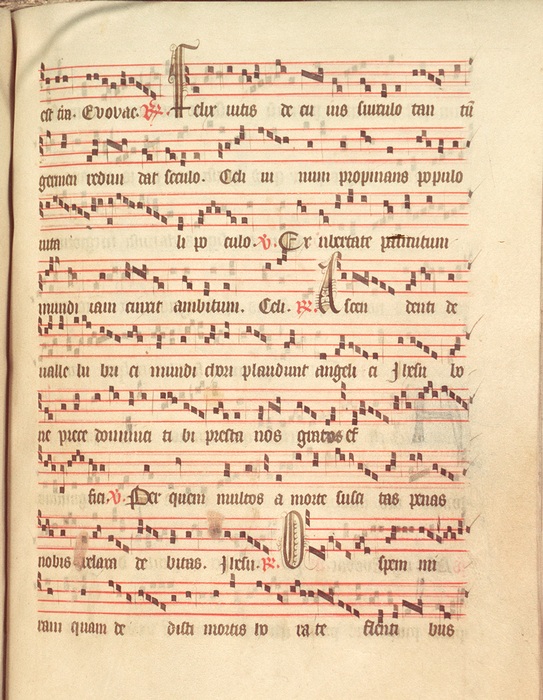 est an. Evovae. R. Felix vitis de cu ius surculo tan tu
germen redun dat seculo. Celi vi num propinans populo
vita li po culo. V. Ex ubertate palmitum
mundi iam cinxit ambitum. Celi. R. Ascen denti de
valle lu bri ci mundi chori plaudunt angeli ci Jhesu bo
ne prece dominici ti bi presta nos gratos ef
fici. V. Per quem multos a morte susci tas penas
nobis relaxa de bitas. Jhesu. R. O spem mi
ram quam de disti mortis ho ra te flenti bus